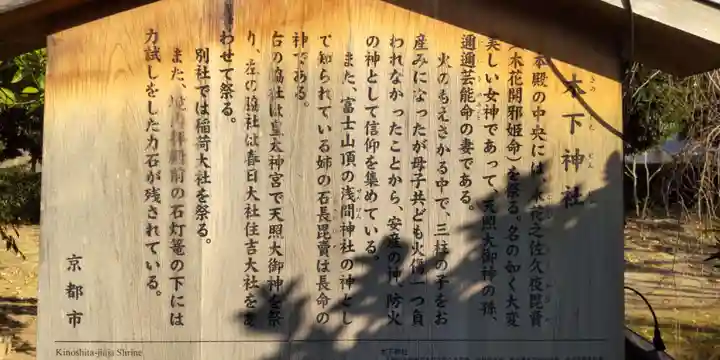 木下神社
きのした
本殿の中央には、木花之佐久夜毘賣
(木花開邪姫命)を祭る。名の如く大変
美しい女神であって、天照大御神の孫、
邇邇芸能命の妻である。
火のもえさかる中で、三柱の子をお
産みになったが母子共ども火傷一つ負
われなかったことから、安産の神、防火
の神として信仰を集めている。
また、富士山頂の浅間神社の神とし
せんげん
て知られている姉の石長毘賣は長命の
神である。
右の脇社は皇太神宮で天照大御神を祭
り、左の脇社は春日大社住吉大社をあ
わせて祭る。
別社では稲荷大社を祭る。
また、拝殿前の石灯篭の下には
力試しをした力石が残されている。
京都市
Kinoshita-jinja Shrine
木下神社